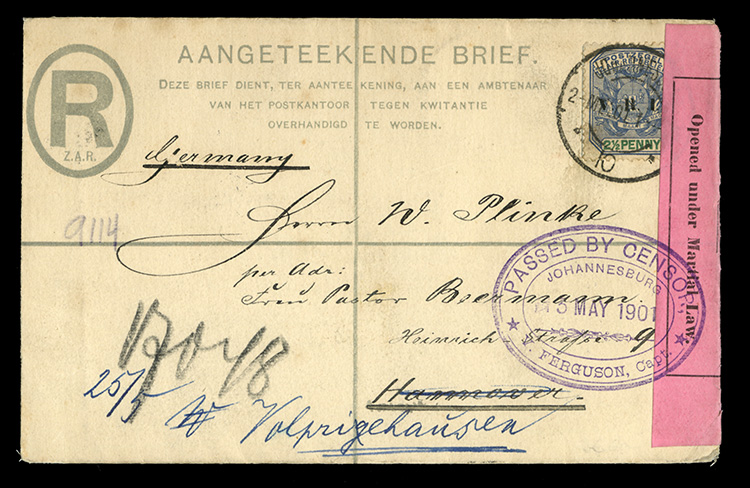 AANGETEEKENDE BRIEF.
DEZE BRIEF DIENT, TER AANTEEKENING, AAN EEN AMBTENAAR
VAN HET POSTKANTOOR TEGEN KWITANTIE
OVERHANDIGD TE WORDEN.
R
Z.A.R.
POSTZEGEL
V. R. I.
2½ PENNY
Opened under Martial Law.
Germany
Herrn W. Plinke
9114
per Adr:
Frau Pastor Beermann.
Heinrich Strasse 9
Hannover.
PASSED BY CENSOR,
JOHANNESBURG
3 MAY 1901
FERGUSON, Capt.
25/5
Volprigehausen